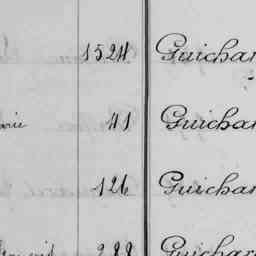 1524 Guichar
41 Guichar
126 Guichar
288 Guichar